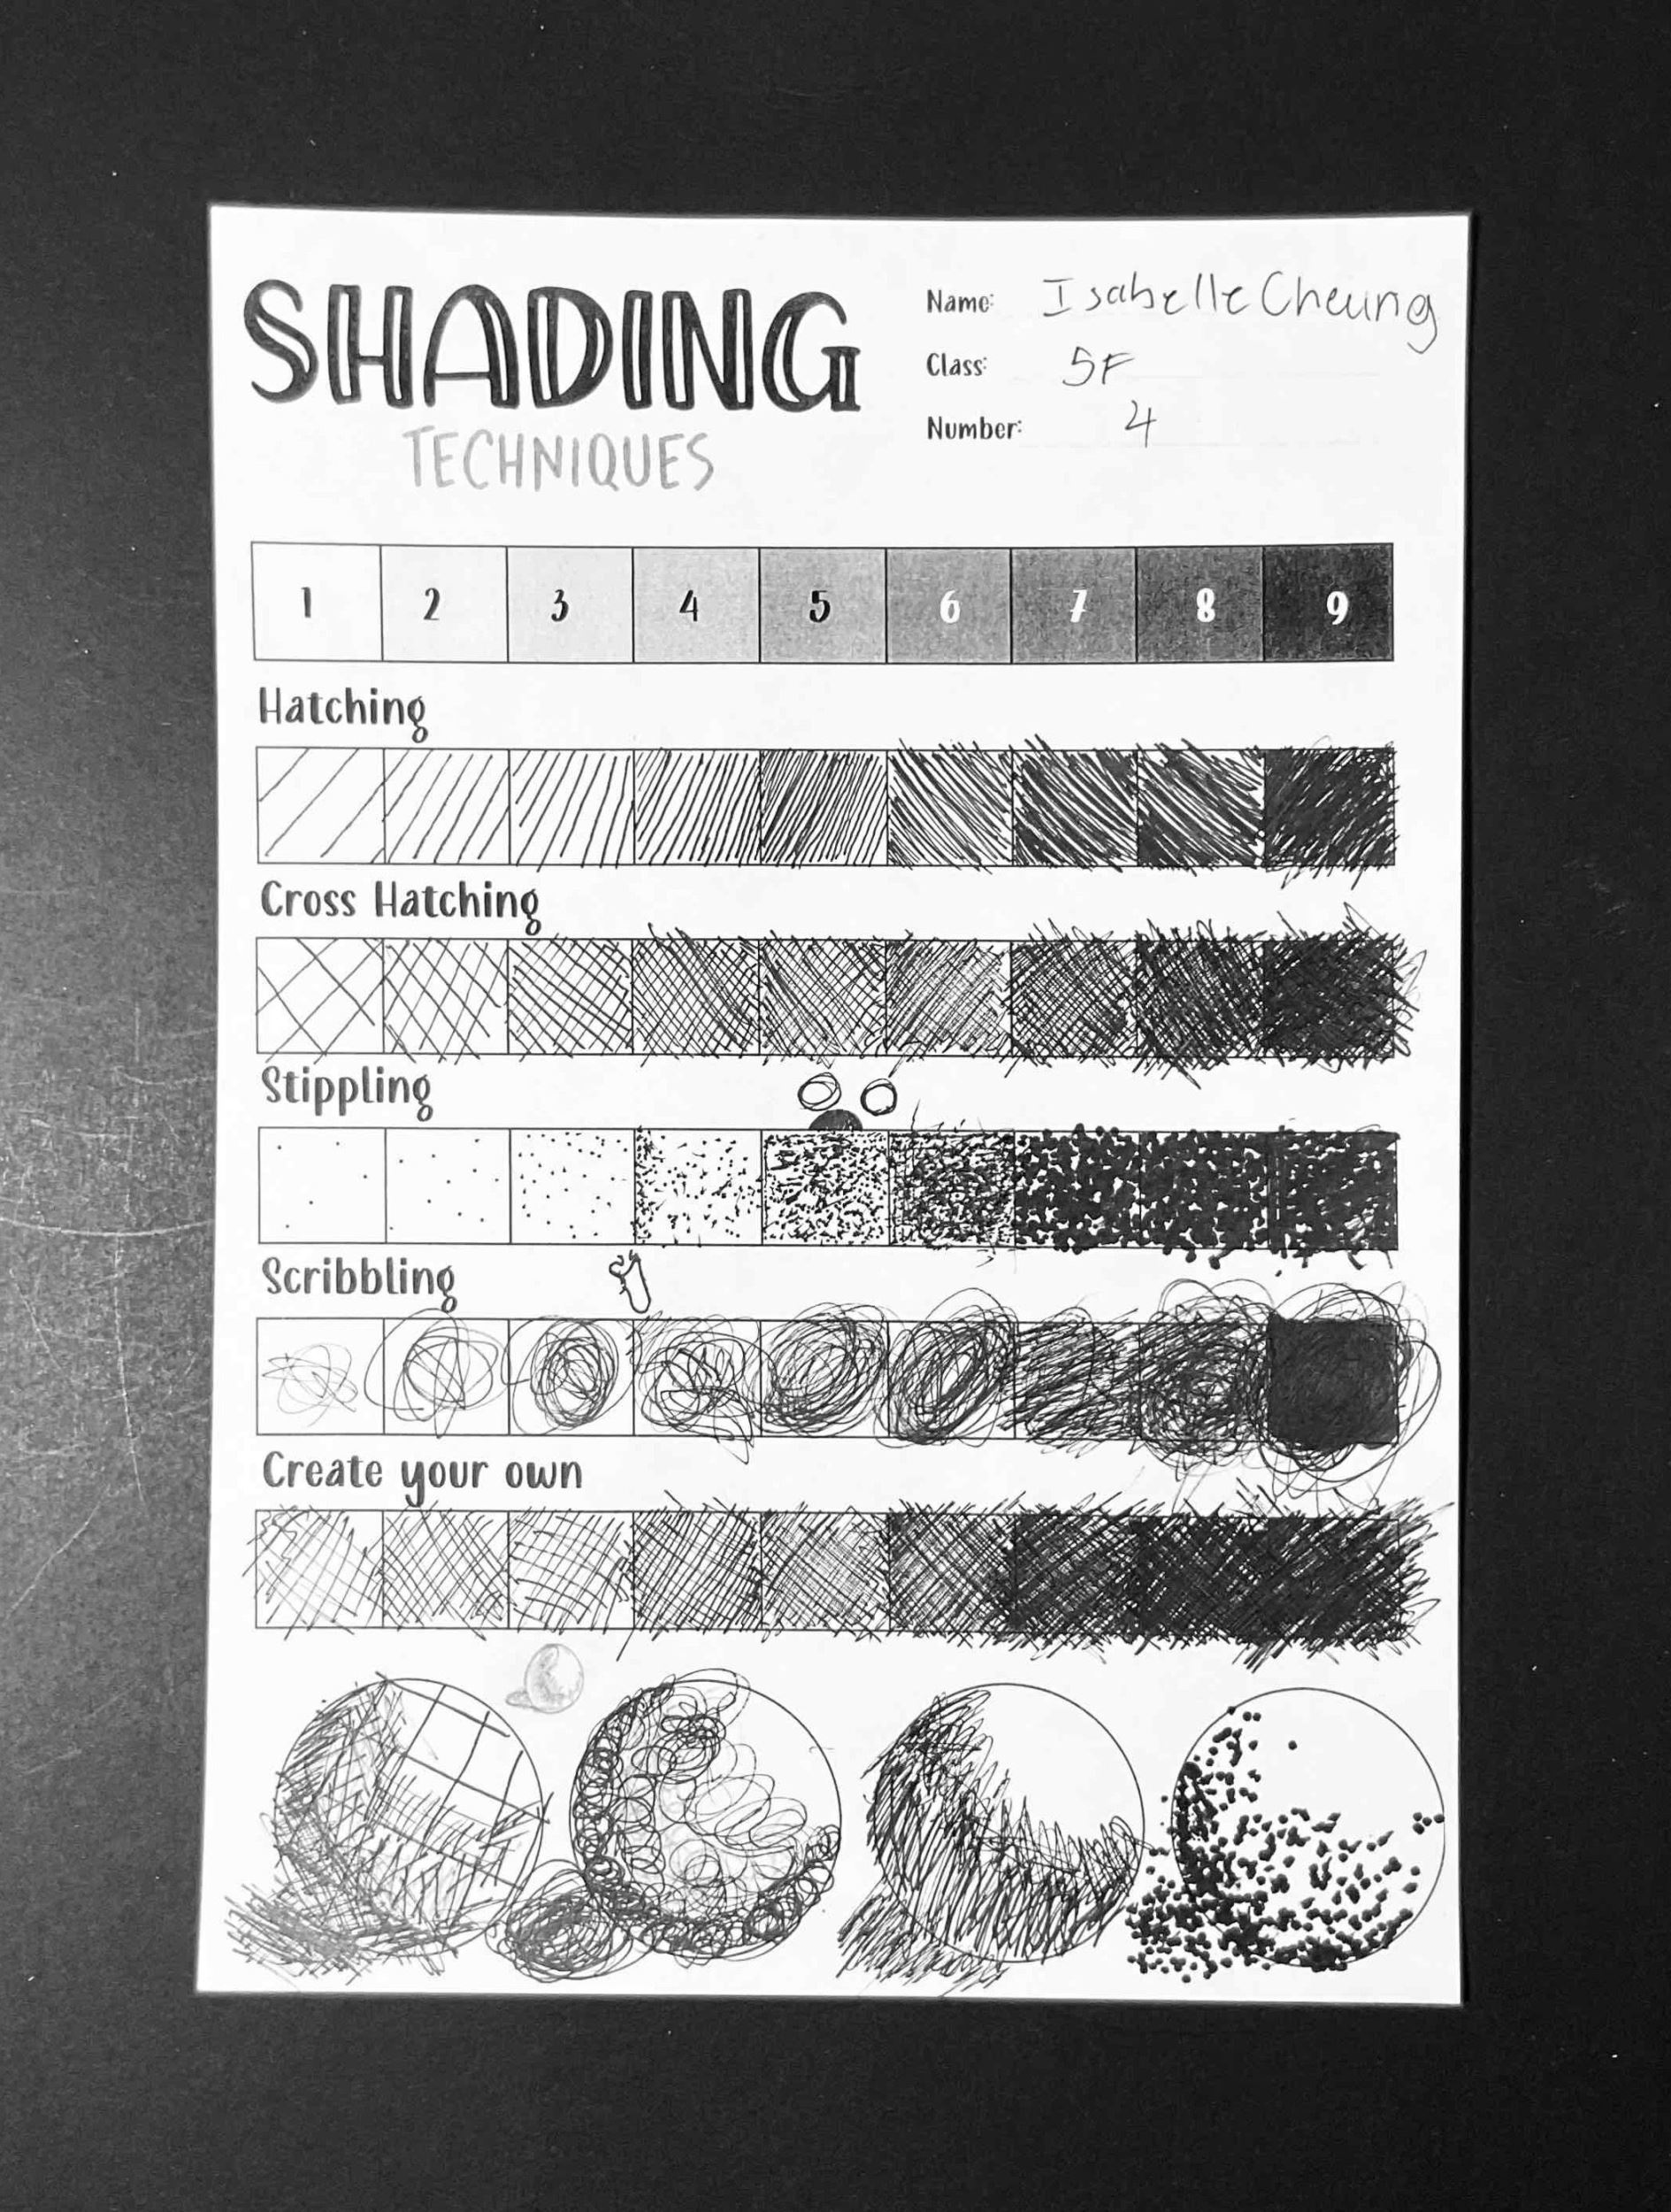 SHADING
TECHNIQUES
Name: Isabelle Cheung
Class: 5F
Number: 4
1 2 3 4 5 6 7 8 9
Hatching
Cross Hatching
Stippling
Scribbling
Create your own